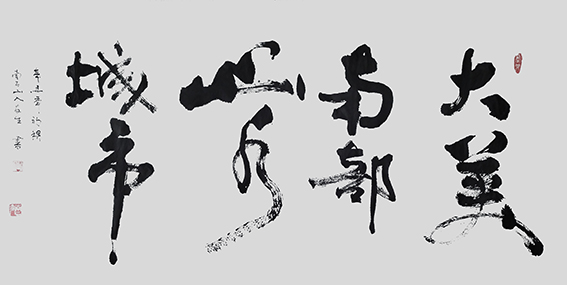 大美
南部
山水
城市